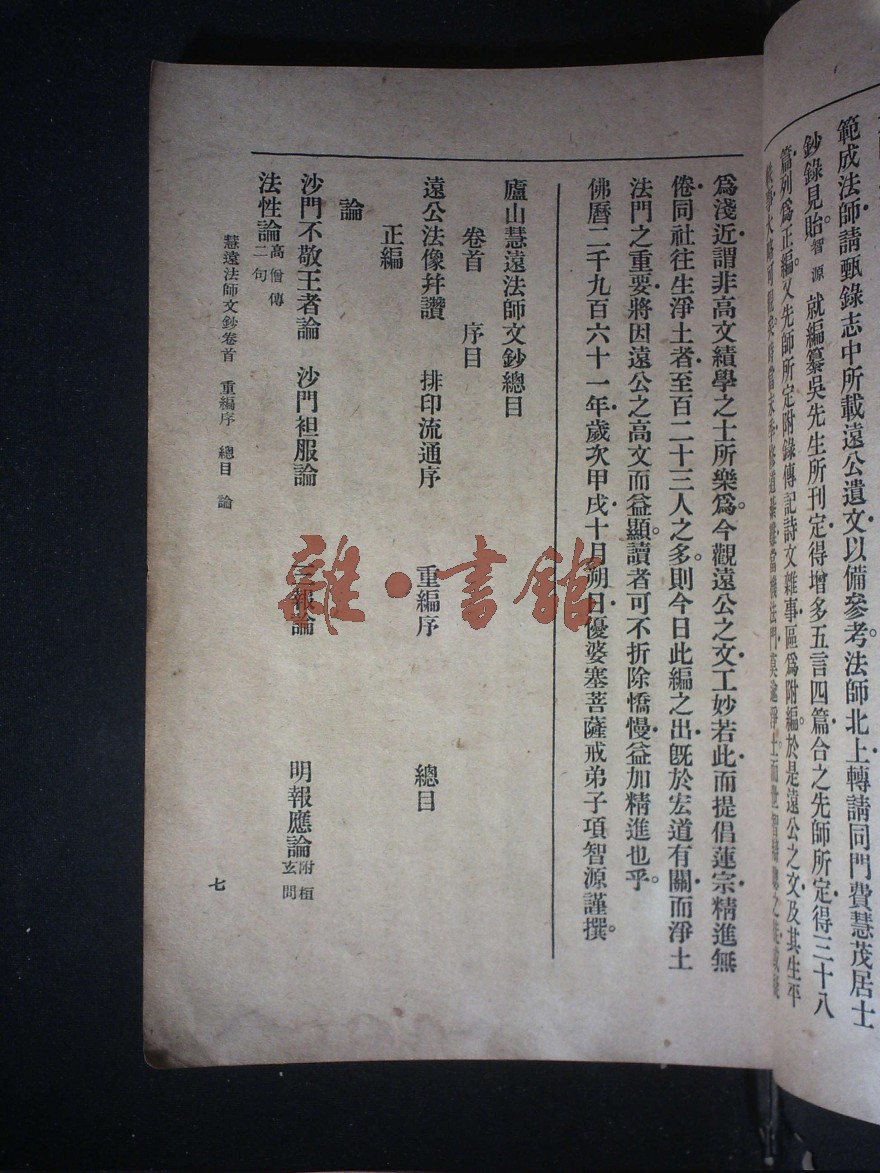 範成法師請甄錄志中所載遠公遺文以備參考。法師北上轉請同門費慧茂居士
鈔錄見貽。智源就編纂吳先生所刊定得增多五言四篇合之先師所定得三十八
篇列為正編。又先師所定附錄傳記詩文雜事區為附編。於是遠公之文及其生平
為淺近謂非高文績學之士所樂為。今觀遠公之文工妙若此而提倡蓮宗精進無
倦同社往生淨土者至百二十三人之多。則今日此編之出旣於宏道有關而淨土
法門之重要將因遠公之高文而益顯。讀者可不折除憍慢益加精進也乎。
佛曆二千九百六十一年歲次甲戌十月朔日優婆塞菩薩戒弟子項智源謹撰。
廬山慧遠法師文鈔總目
卷首 序目
遠公法像幷讚 排印流通序 重編序 總目
正編
論
沙門不敬王者論 沙門袒服論 三報論 明報應論附桓玄問
法性論高僧傳二句
慧遠法師文鈔卷首 重編序 總目 論 七
雜·書館